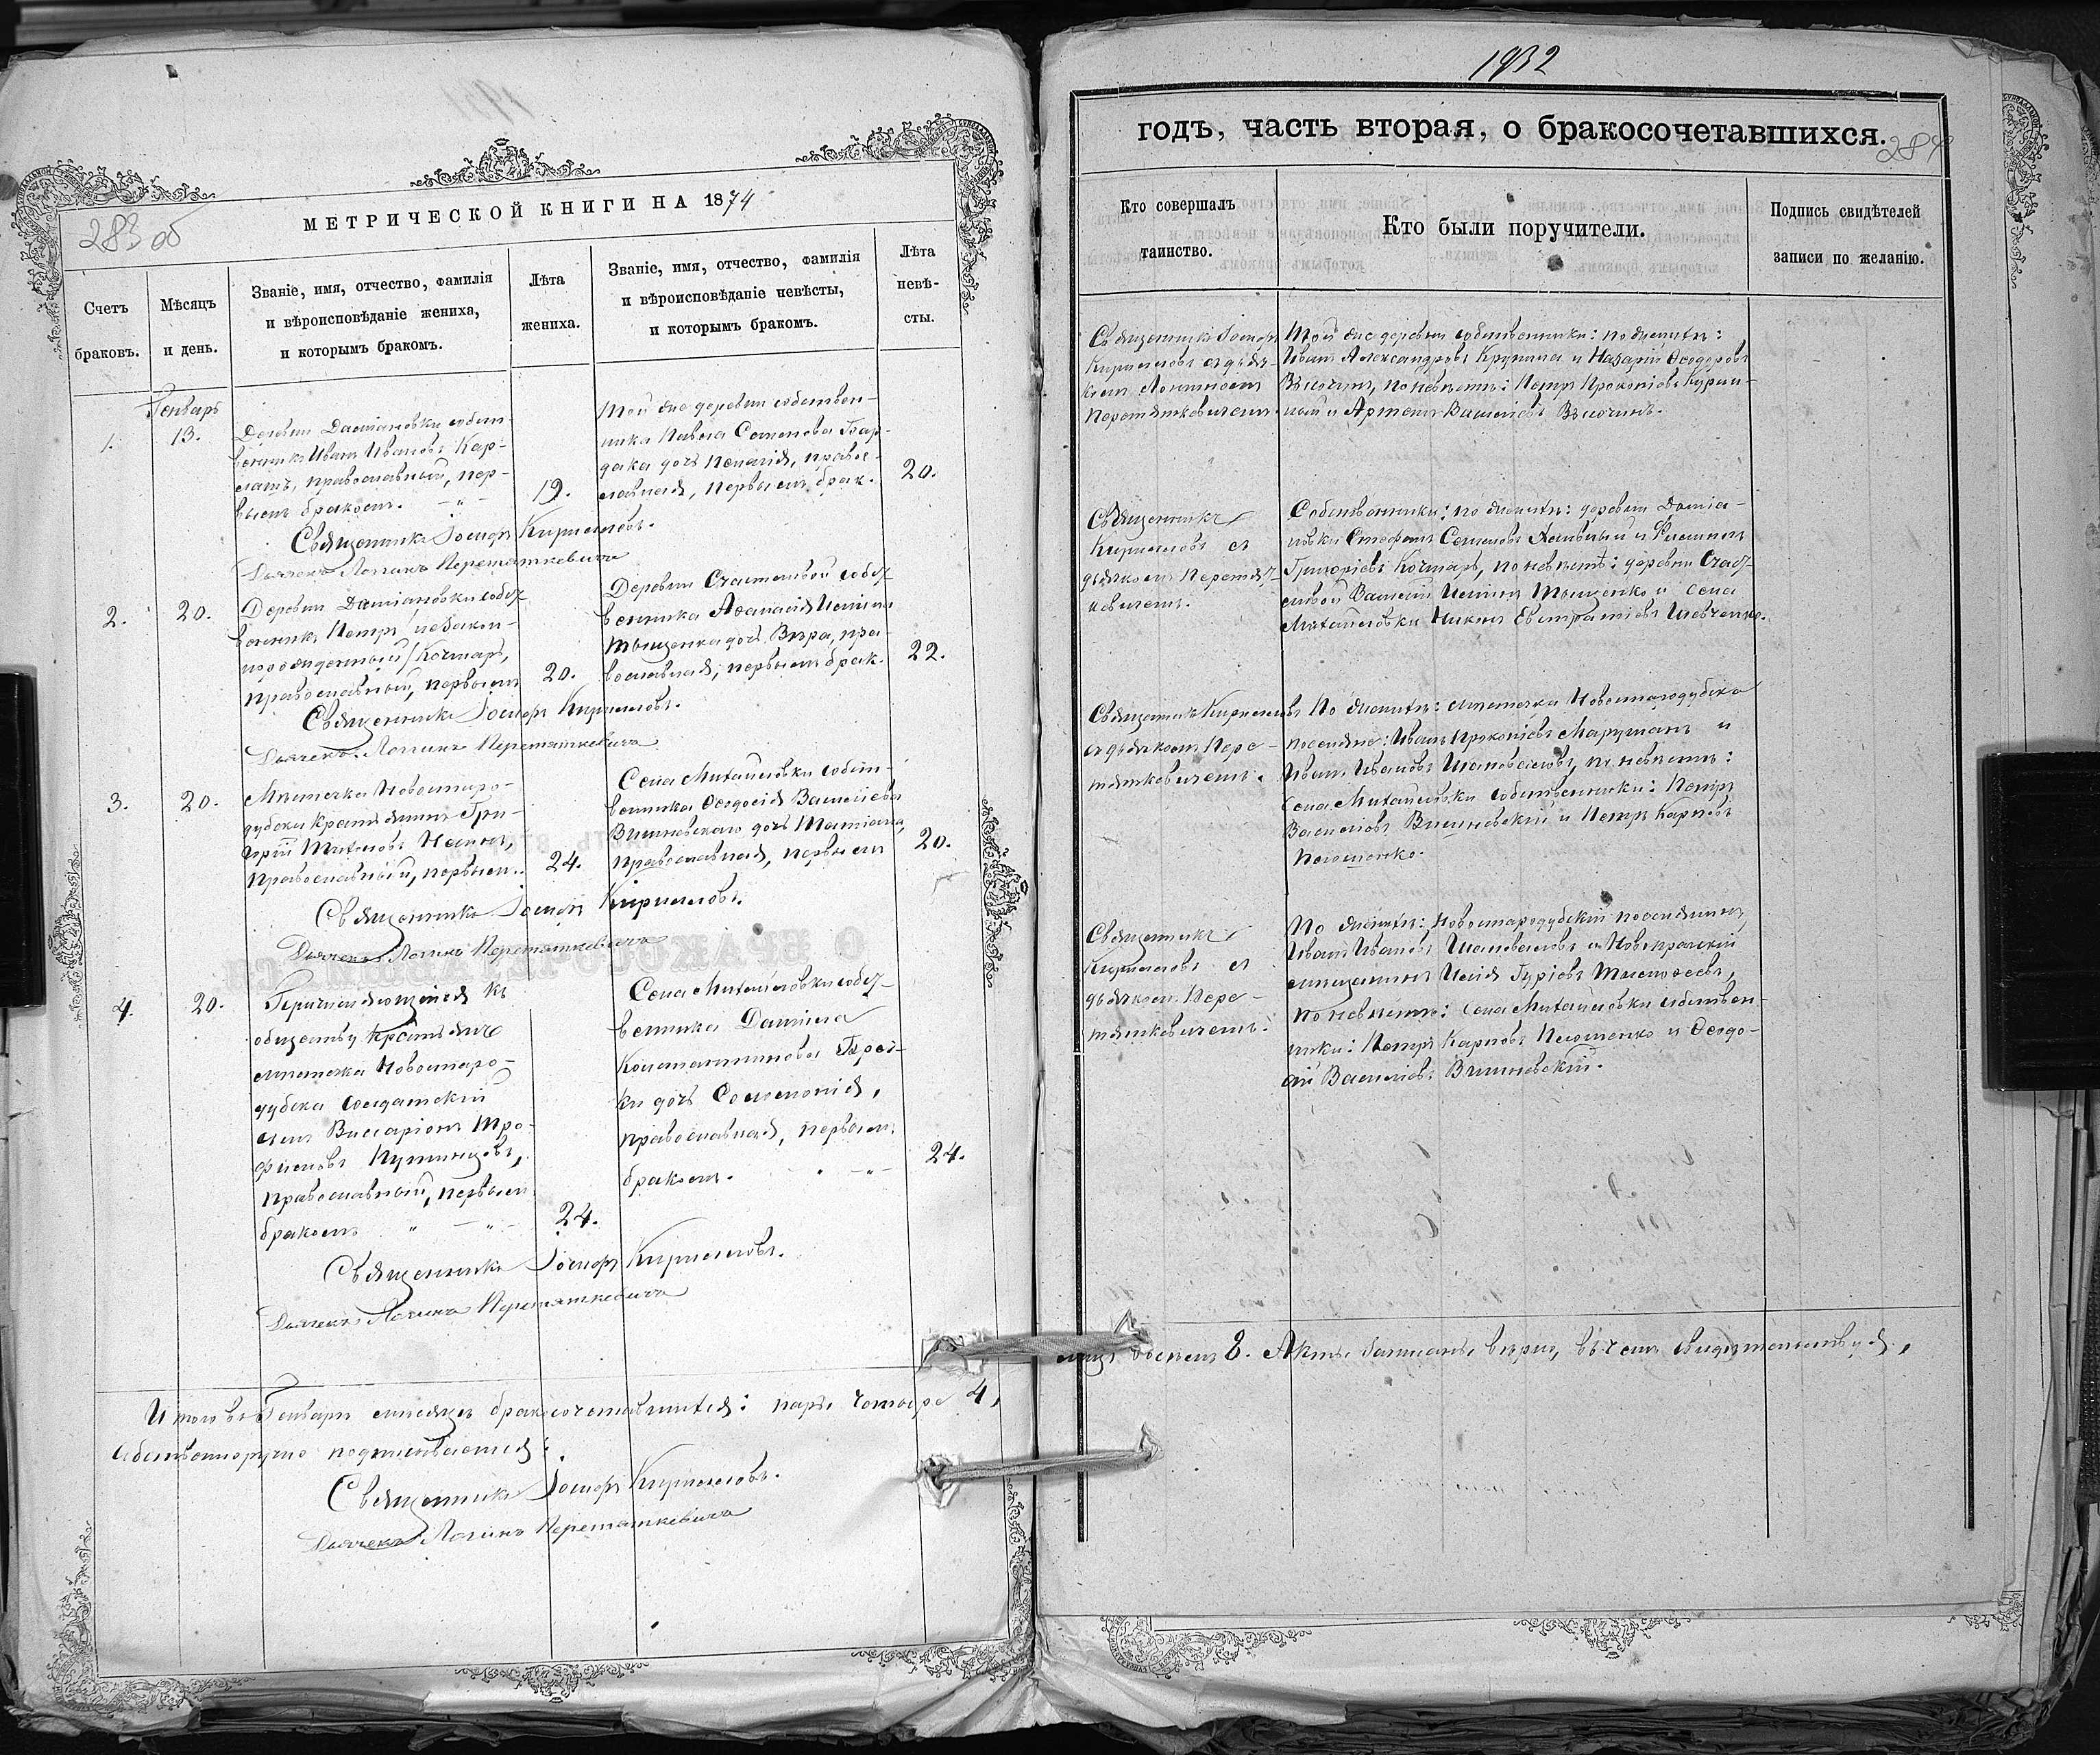 283 об
МЕТРИЧЕСКОЙ КНИГИ НА 1874
Счетъ
браковъ.
Мѣсяцъ
и день.
Званіе, имя, отчество, фамилія
и вѣроисповѣданіе жениха,
и которымъ бракомъ.
Лѣта
жениха.
Званіе, имя, отчество, фамилія
и вѣроисповѣданіе невѣсты,
и которымъ бракомъ.
Лѣта
невѣ-
сты.
1.
Генварь
13.
Деревни Даміановки собст-
венникъ Иванъ Ивановъ Кар-
православный, пер-
вымъ бракомъ. - " -
19.
Той же деревни собствен-
ника Павла Семенова
дака дочь Пелагія, право-
славная, первымъ брак.
20.
Священникъ Іосифъ Кирилловъ.
Дьячекъ Логинъ Перетятковичъ
2.
20.
Деревни Даміановки собст-
венникъ Петръ /незакон-
норожденный/ Кочмаръ,
православный, первымъ
20.
Деревни Счастливой собст-
венника Аѳанасія
Тищенка дочь Вѣра, пра-
вославная, первымъ брак.
22.
Священникъ Іосифъ Кирилловъ.
Дьячекъ Логинъ Перетятковичъ
3.
20.
Мѣстечка Новостаро-
дубска крестьянинъ Гри-
горій
православный, первым.
24.
Села Михайловки собст-
венника Ѳеодосія Васильева
Вишневскаго дочь Татіана,
православная, первымъ
20.
Священникъ Іосифъ Кирилловъ.
Дьячекъ Логинъ Перетятковичъ
4.
20.
Причисляющійся къ
обществу крестьянъ
мѣстечка Новостаро-
дубска солдатскій
сынъ Виссаріонъ Тро-
фимовъ Путинцовъ,
православный, первымъ
бракомъ " - " -
24.
Села Михайловки собст-
венника Даніила
Константинова
дочь Соломонія,
православная, первымъ
бракомъ. - " -
24.
Священникъ Іосифъ Кирилловъ.
Дьячекъ Логинъ Перетятковичъ
Итого въ Генварѣ мѣсяцѣ бракосочетавшихся: паръ четыре 4,
собственноручно подписываемся:
Священникъ Іосифъ Кирилловъ.
Дьячекъ Логинъ Перетятковичъ
1932
284
годъ, часть вторая, о бракосочетавшихся.
Кто совершалъ
таинство.
Кто были поручители.
Подпись свидѣтелей
записи по желанію.
Священникъ Іосифъ
Кирилловъ съ дьяч-
комъ Логиномъ
Перетятковичемъ.
Той же деревни собственники: по женихѣ:
Иванъ Александровъ Крупина и Назарій Ѳеодоровъ
по невѣстѣ: Петръ Прокопіевъ
и Артемъ Васильевъ
Священникъ
Кирилловъ съ
дьячкомъ Перетят-
ковичемъ.
Собственники: по женихѣ: деревни Даміа-
новки Стефанъ Семеновъ и Филиппъ
Григоріевъ Кочмаръ, по невѣстѣ: деревни Счаст-
ливой Василій Тищенко и села
Михайловки Никита Евстратіевъ Шевченко.
Священникъ Кирилловъ
съ дьячкомъ Пере-
тятковичемъ.
По женихѣ: мѣстечка Новостародубска
поселяне: Иванъ Прокопіевъ и
Иванъ Ивановъ Шаповаловъ, по невѣстѣ:
села Михайловки собственники: Петръ
Васильевъ Вишневскій и Петръ Карповъ
Священникъ
Кирилловъ съ
дьячкомъ Пере-
тятковичемъ.
По женихѣ: Новостародубскій поселянинъ
Иванъ Ивановъ Шаповаловъ и Новопражскій
мѣщанинъ Илія Гуріевъ Тимоѳеевъ,
по невѣстѣ: села Михайловки собствен-
ники: Петръ Карповъ и Ѳеодо-
сій Васильевъ Вишневскій.
лицъ восемь 8. Акты записаны вѣрно, въ чемъ свидѣтельствуя,